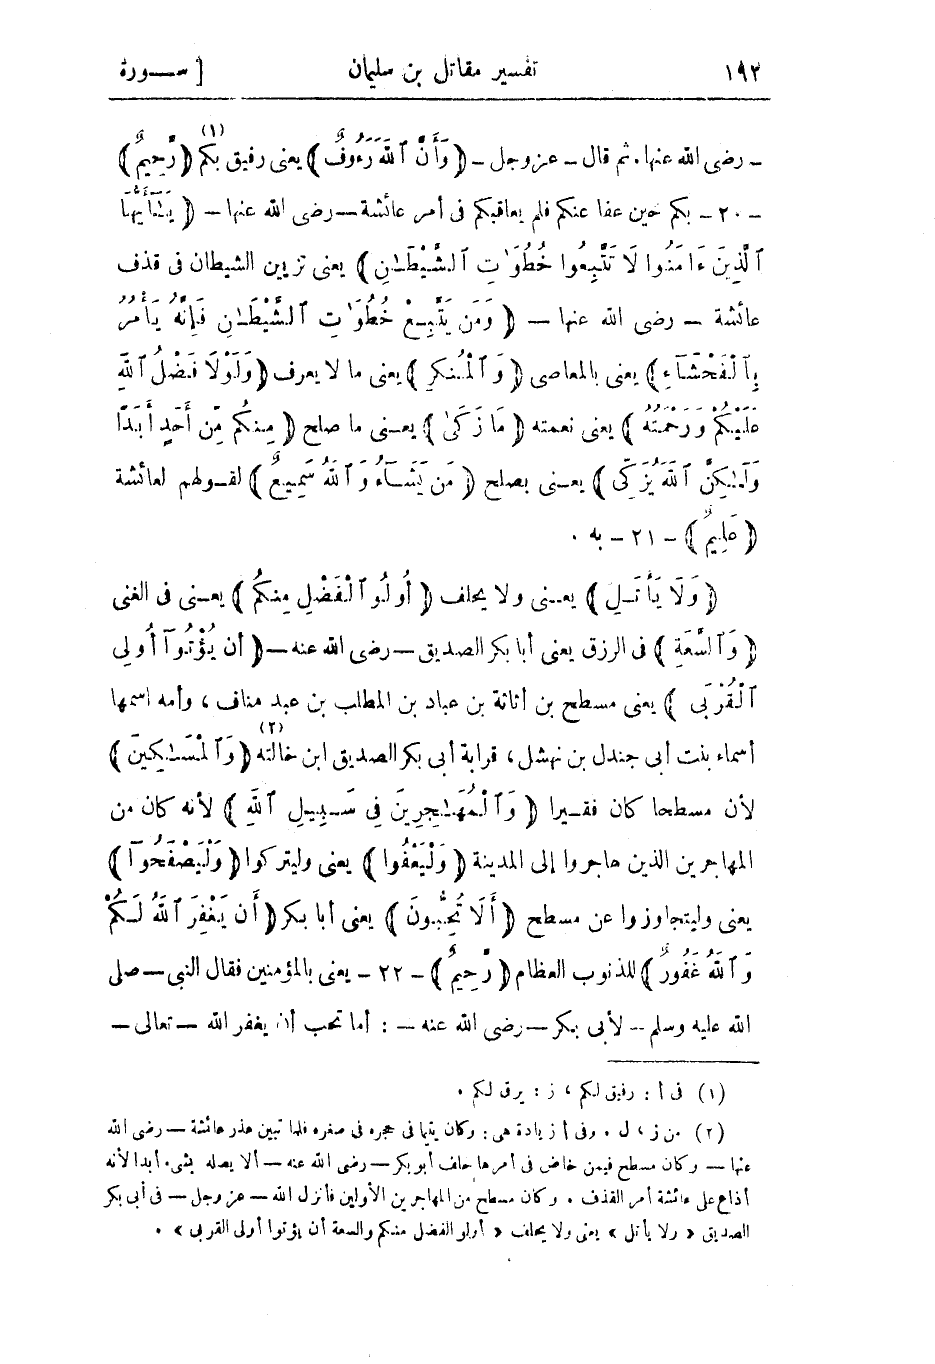 ١٩٢ تفسير مقاتل بن سليمان [ سـورة
ـ رضى الله عنها. ثم قال ـ عز وجل ـ ﴿ وَأَنَّ ٱللَّهَ رَءُوفٌ ﴾ يعنى رفيق بكم (١) ﴿ رَّحِيمٌ ﴾
ـ ٢٠ ـ بكم حين عفا عنكم فلم يعاقبكم فى أمر عائشة ـ رضى الله عنها ـ ﴿ يَـٰٓأَيُّهَا
ٱلَّذِينَ ءَامَنُوا لَا تَتَّبِعُوا خُطُوَٰتِ ٱلشَّيْطَـٰنِ ﴾ يعنى تزيين الشيطان فى قذف
عائشة ـ رضى الله عنها ـ ﴿ وَمَن يَتَّبِعْ خُطُوَٰتِ ٱلشَّيْطَـٰنِ فَإِنَّهُ يَأْمُرُ
بِٱلْفَحْشَآءِ ﴾ يعنى بالمعاصى ﴿ وَٱلْمُنكَرِ ﴾ يعنى ما لا يعرف ﴿ وَلَوْلَا فَضْلُ ٱللَّهِ
عَلَيْكُمْ وَرَحْمَتُهُ ﴾ يعنى نعمته ﴿ مَا زَكَىٰ ﴾ يعـنى ما صلح ﴿ مِنكُم مِّنْ أَحَدٍ أَبَدًا
وَلَـٰكِنَّ ٱللَّهَ يُزَكِّى ﴾ يعـنى يصلح ﴿ مَن يَشَـآءُ وَٱللَّهُ سَمِيعٌ ﴾ لقـولهم لعائشة
﴿ عَلِيمٌ ﴾ ـ ٢١ ـ به .
﴿ وَلَا يَأْتَـلِ ﴾ يعـنى ولا يحلف ﴿ أُولُو ٱلْفَضْلِ مِنكُمْ ﴾ يعـنى فى الغنى
﴿ وَٱلسَّعَةِ ﴾ فى الرزق يعنى أبا بكر الصديق ـ رضى الله عنه ـ ﴿ أَن يُؤْتُوٓا أُولِى
ٱلْقُرْبَى ﴾ يعنى مسطح بن أثاثة بن عباد بن المطلب بن عبد مناف ، وأمه اسمها
أسماء بنت أبى جندل بن نهشل، قرابة أبى بكر الصديق ابن خالته (٢) ﴿ وَٱلْمَسَـٰكِينَ ﴾
لأن مسطحا كان فقـيرا ﴿ وَٱلْمُهَـٰجِرِينَ فِى سَـبِيلِ ٱللَّهِ ﴾ لأنه كان من
المهاجرين الذين هاجروا إلى المدينة ﴿ وَلْيَعْفُوا ﴾ يعنى وليتركوا ﴿ وَلْيَصْفَحُوٓا ﴾
يعنى وليتجاوزوا عن مسطح ﴿ أَلَا تُحِبُّونَ ﴾ يعنى أبا بكر ﴿ أَن يَغْفِرَ ٱللَّهُ لَـكُمْ
وَٱللَّهُ غَفُورٌ ﴾ للذنوب العظام ﴿ رَّحِيمٌ ﴾ ـ ٢٢ ـ يعنى بالمؤمنين فقال النبى ـ صلى
الله عليه وسلم ـ لأبى بكر ـ رضى الله عنه ـ : أما تحب أن يغفر الله ـ تعالى ـ
(١) فى أ : رفيق لكم ، ز : يرق لكم .
(٢) من ز ، ل . وفى أ ز يادة هى : وكان يتيما فى حجره فى صغره فلما تبين عذر عائشة ـ رضى الله
عنها ـ وكان مسطح فيمن خاض فى أمرها حلف أبو بكر ـ رضى الله عنه ـ ألا يصله بشىء أبدا لأنه
أذاع على عائشة أمر القذف . وكان مسطح من المهاجرين الأولين فأنزل الله ـ عز وجل ـ فى أبى بكر
الصديق « ولا يأتل » يعنى ولا يحلف « أولو الفضل منكم والسعة أن يؤتوا أولى القربى » .